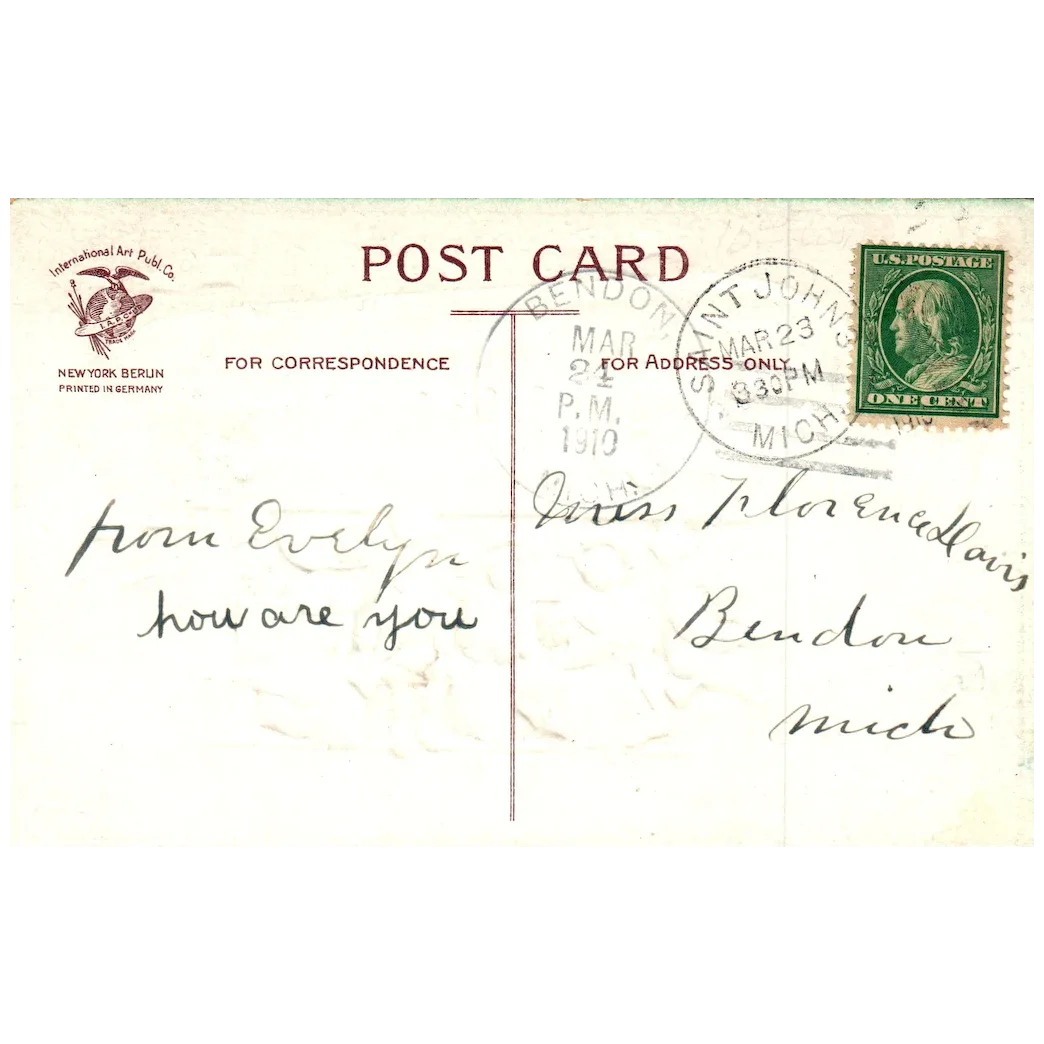 International Art Publ. Co.
I.A.P.C.
TRADE MARK
NEW YORK BERLIN
PRINTED IN GERMANY
POST CARD
FOR CORRESPONDENCE
FOR ADDRESS ONLY
BENDON,
MAR
24
P.M.
1910
MICH.
SAINT JOHNS
MAR 23
830PM
MICH.
1910
U.S. POSTAGE
ONE CENT
from Evelyn
how are you
Miss Florence Davis
Bendon
Mich